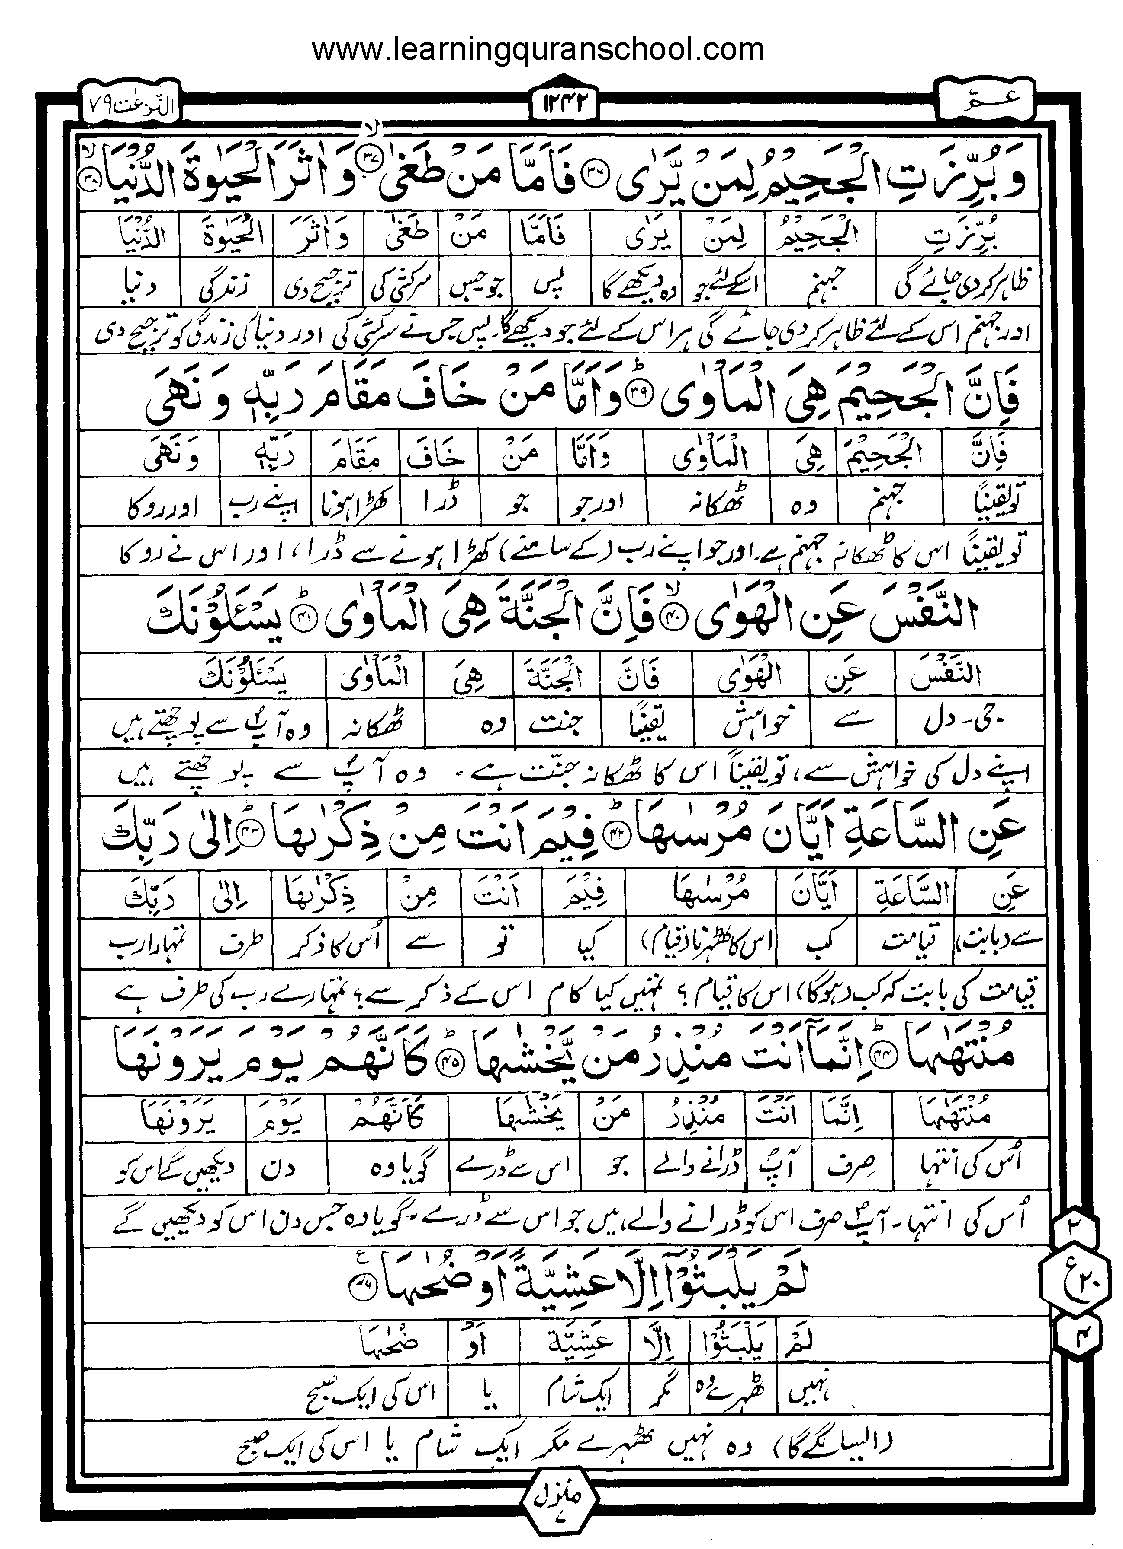 www.learningquranschool.com
النّٰزعٰت ٧٩
١٢٤٢
عـــمّ
وَ بُرِّزَتِ الْجَحِيْمُ لِمَنْ يَّرٰى ﴿٣٦﴾ فَاَمَّا مَنْ طَغٰى ﴿٣٧﴾ لا وَ اٰثَرَ الْحَيٰوةَ الدُّنْيَا ﴿٣٨﴾ لا
بُرِّزَتِ الْجَحِيْمُ لِمَنْ يَرٰى فَاَمَّا مَنْ طَغٰى وَ اٰثَرَ الْحَيٰوةَ الدُّنْيَا
ظاہر کردی جائے گی جہنم اسکے لئے جو وہ دیکھے گا پس جو جیس سرکشی کی ترجیح دی زندگی دنیا
اور جہنم اس کے لئے ظاہر کردی جائے گی ہر اس کے لئے جو دیکھے گا۔ پس جس نے سرکشی کی اور دنیا کی زندگی کو ترجیح دی
فَاِنَّ الْجَحِيْمَ هِىَ الْمَاْوٰى ﴿٣٩﴾ ط وَ اَمَّا مَنْ خَافَ مَقَامَ رَبِّهٖ وَ نَهَى
فَاِنَّ الْجَحِيْمَ هِىَ الْمَاْوٰى وَاَمَّا مَنْ خَافَ مَقَامَ رَبِّهٖ وَ نَهَى
تو یقینًا جہنم وہ ٹھکانہ اور جو جو ڈرا کھڑا ہونا اپنے رب اور روکا
تو یقینًا اس کا ٹھکانہ جہنم ہے۔ اور جو اپنے رب (کے سامنے) کھڑا ہونے سے ڈرا، اور اس نے روکا
النَّفْسَ عَنِ الْهَوٰى ﴿٤٠﴾ لا فَاِنَّ الْجَنَّةَ هِىَ الْمَاْوٰى ﴿٤١﴾ ط يَسْـَٔلُوْنَكَ
النَّفْسَ عَنِ الْهَوٰى فَاِنَّ الْجَنَّةَ هِىَ الْمَاْوٰى يَسْـَٔلُوْنَكَ
جی۔ دل سے خواہش یقینًا جنت وہ ٹھکانہ وہ آپؐ سے پوچھتے ہیں
اپنے دل کی خواہش سے، تو یقینًا اس کا ٹھکانہ جنت ہے۔ وہ آپؐ سے پوچھتے ہیں
عَنِ السَّاعَةِ اَيَّانَ مُرْسٰىهَا ﴿٤٢﴾ ط فِيْمَ اَنْتَ مِنْ ذِكْرٰىهَا ﴿٤٣﴾ ط اِلٰى رَبِّكَ
عَنِ السَّاعَةِ اَيَّانَ مُرْسٰىهَا فِيْمَ اَنْتَ مِنْ ذِكْرٰىهَا اِلٰى رَبِّكَ
سے (بابت) قیامت کب اس کا ٹھہرنا (قیام) کیا تو سے اُس کا ذکر طرف تمہارا رب
قیامت کی بابت کہ کب (ہوگا) اس کا قیام؟ تمہیں کیا کام اس کے ذکر سے؟ تمہارے رب کی طرف ہے
مُنْتَهٰىهَا ﴿٤٤﴾ ط اِنَّمَآ اَنْتَ مُنْذِرُ مَنْ يَّخْشٰىهَا ﴿٤٥﴾ ط كَاَنَّهُمْ يَوْمَ يَرَوْنَهَا
مُنْتَهٰىهَا اِنَّمَا اَنْتَ مُنْذِرُ مَنْ يَخْشٰىهَا كَاَنَّهُمْ يَوْمَ يَرَوْنَهَا
اُس کی انتہا صرف آپؐ ڈرانے والے جو اس سے ڈرے گویا وہ دن دیکھیں گے اس کو
اُس کی انتہا۔ آپؐ صرف اس کو ڈرانے والے ہیں جو اس سے ڈرے۔ گویا وہ جس دن اس کو دیکھیں گے
لَمْ يَلْبَثُوْٓا اِلَّا عَشِيَّةً اَوْ ضُحٰىهَا ﴿٤٦﴾ ع
لَمْ يَلْبَثُوْا اِلَّا عَشِيَّةً اَوْ ضُحٰىهَا
نہیں ٹھہرے وہ مگر ایک شام یا اس کی ایک صبح
(ایسا لگے گا) وہ نہیں ٹھہرے مگر ایک شام یا اس کی ایک صبح
٢
ع ٢٠
٤
منزل ٧